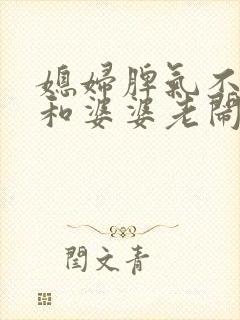 媳婦脾氣不
和婆婆老鬧
閆文青